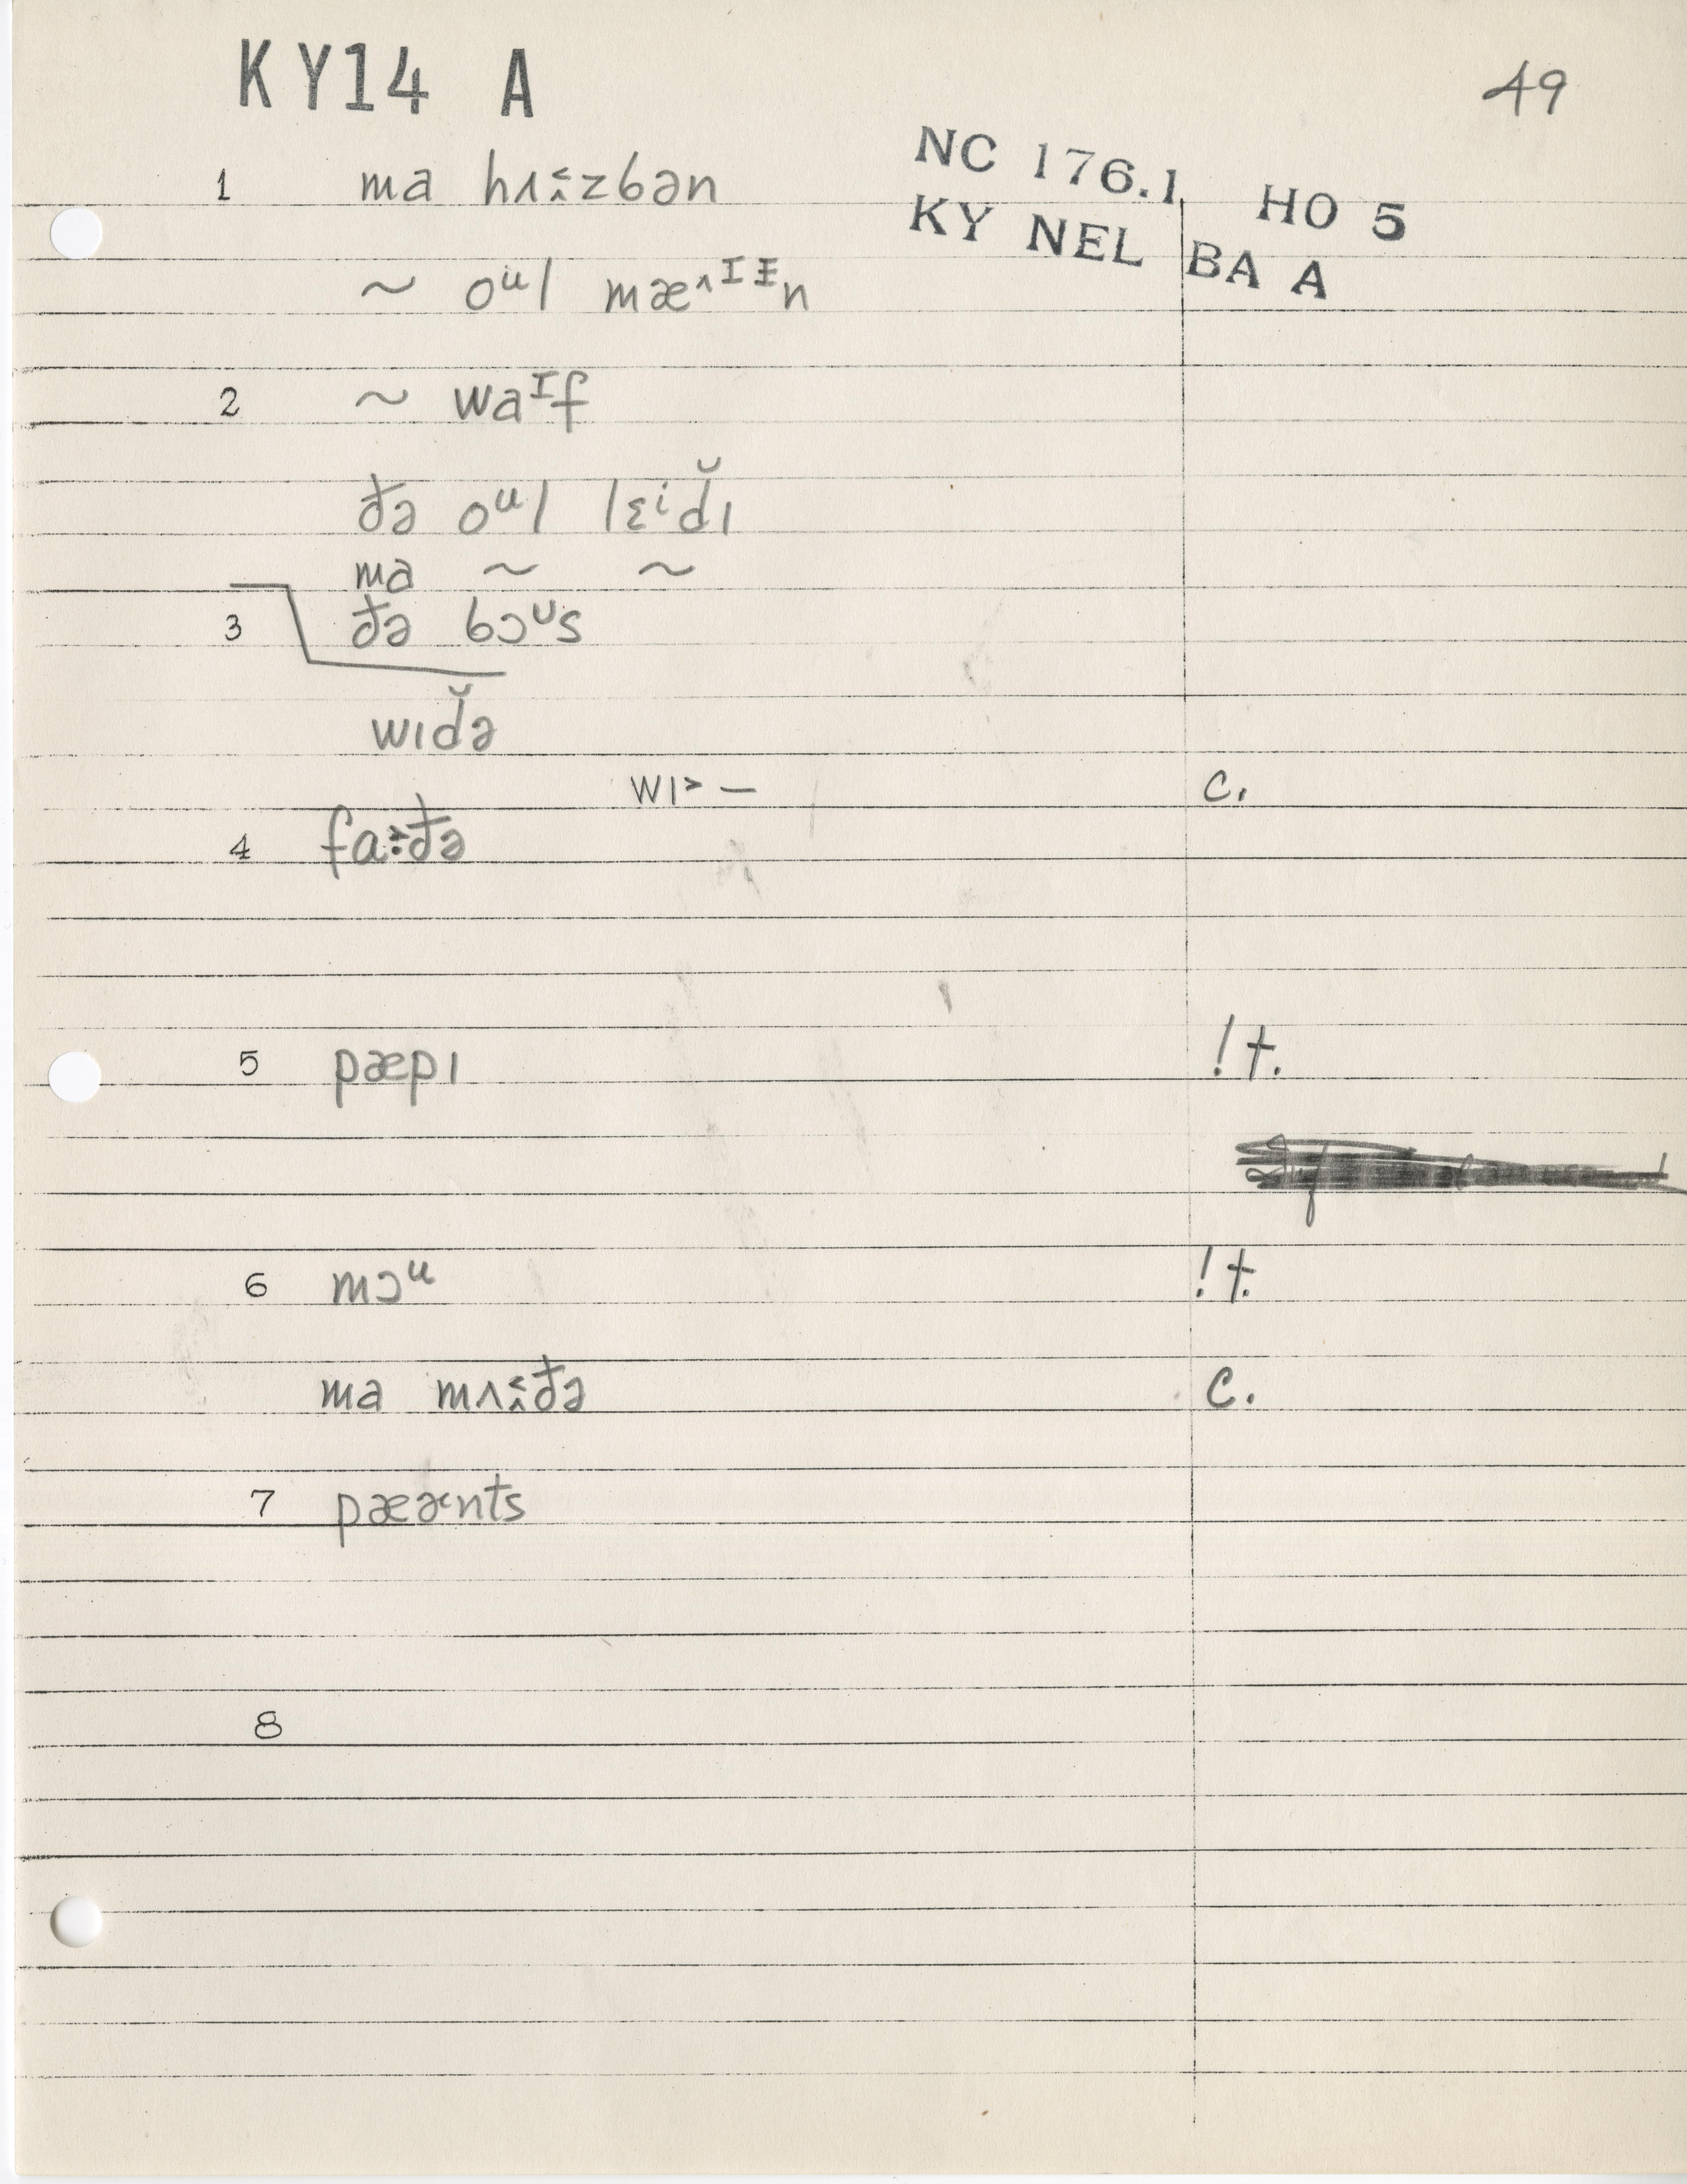 KY14 A
49
NC 176.1 HO 5
KY NEL BA A
1 ma hʌ˂̭zbən
~ oᵘl mæ^ᶦᶧn
2 ~ waᶦf
đə oᵘl lɛⁱd̆ɪ
ma ~ ~
3 đə bɔᶷs
wɪd̆ə
wɪ˃ — c.
4 fa˃·đə
5 pæpɪ !t.
6 mɔᵘ !t.
ma mʌ˂̭đə c.
7 pæə˂nts
8